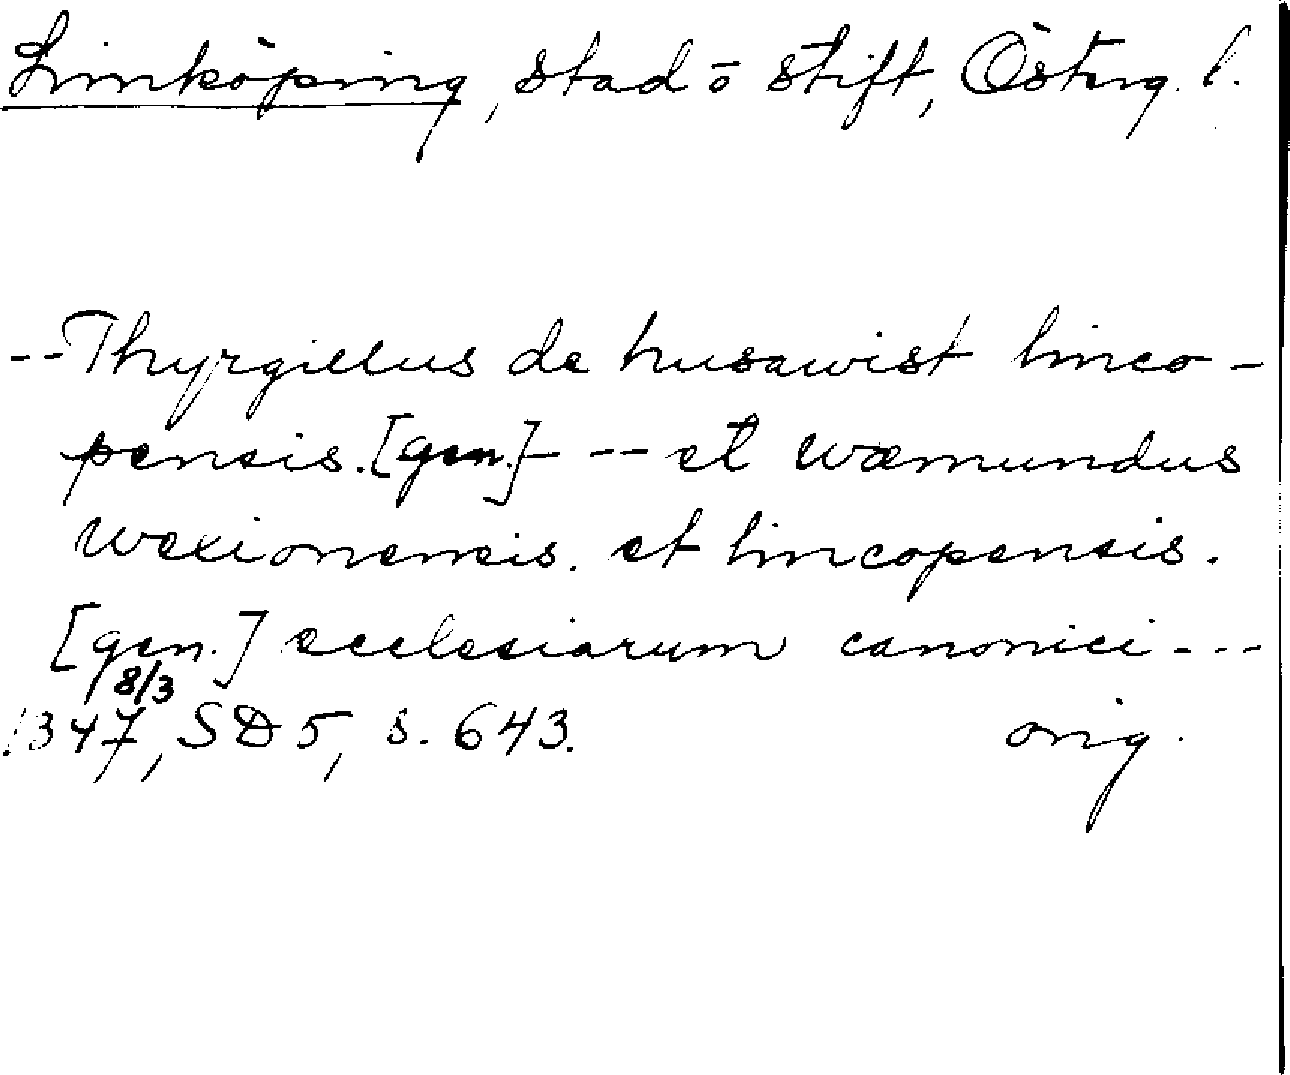 Linköping, stad ō stift, Österg. l.
-- Thyrgillus de husawist linco-
pensis. [gen.] -- et wæmundus
wexionensis. et lincopensis.
[gen.] ecclesiarum canonici ---
8/3
1347, SD 5, s. 643. orig.